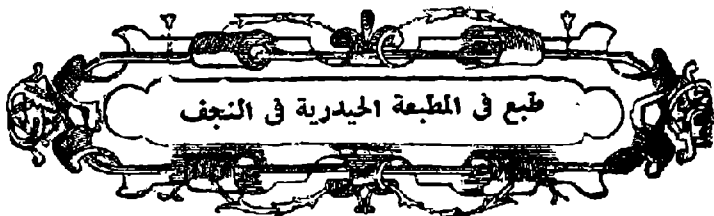 طبع فى المطبعة الحيدرية فى النجف